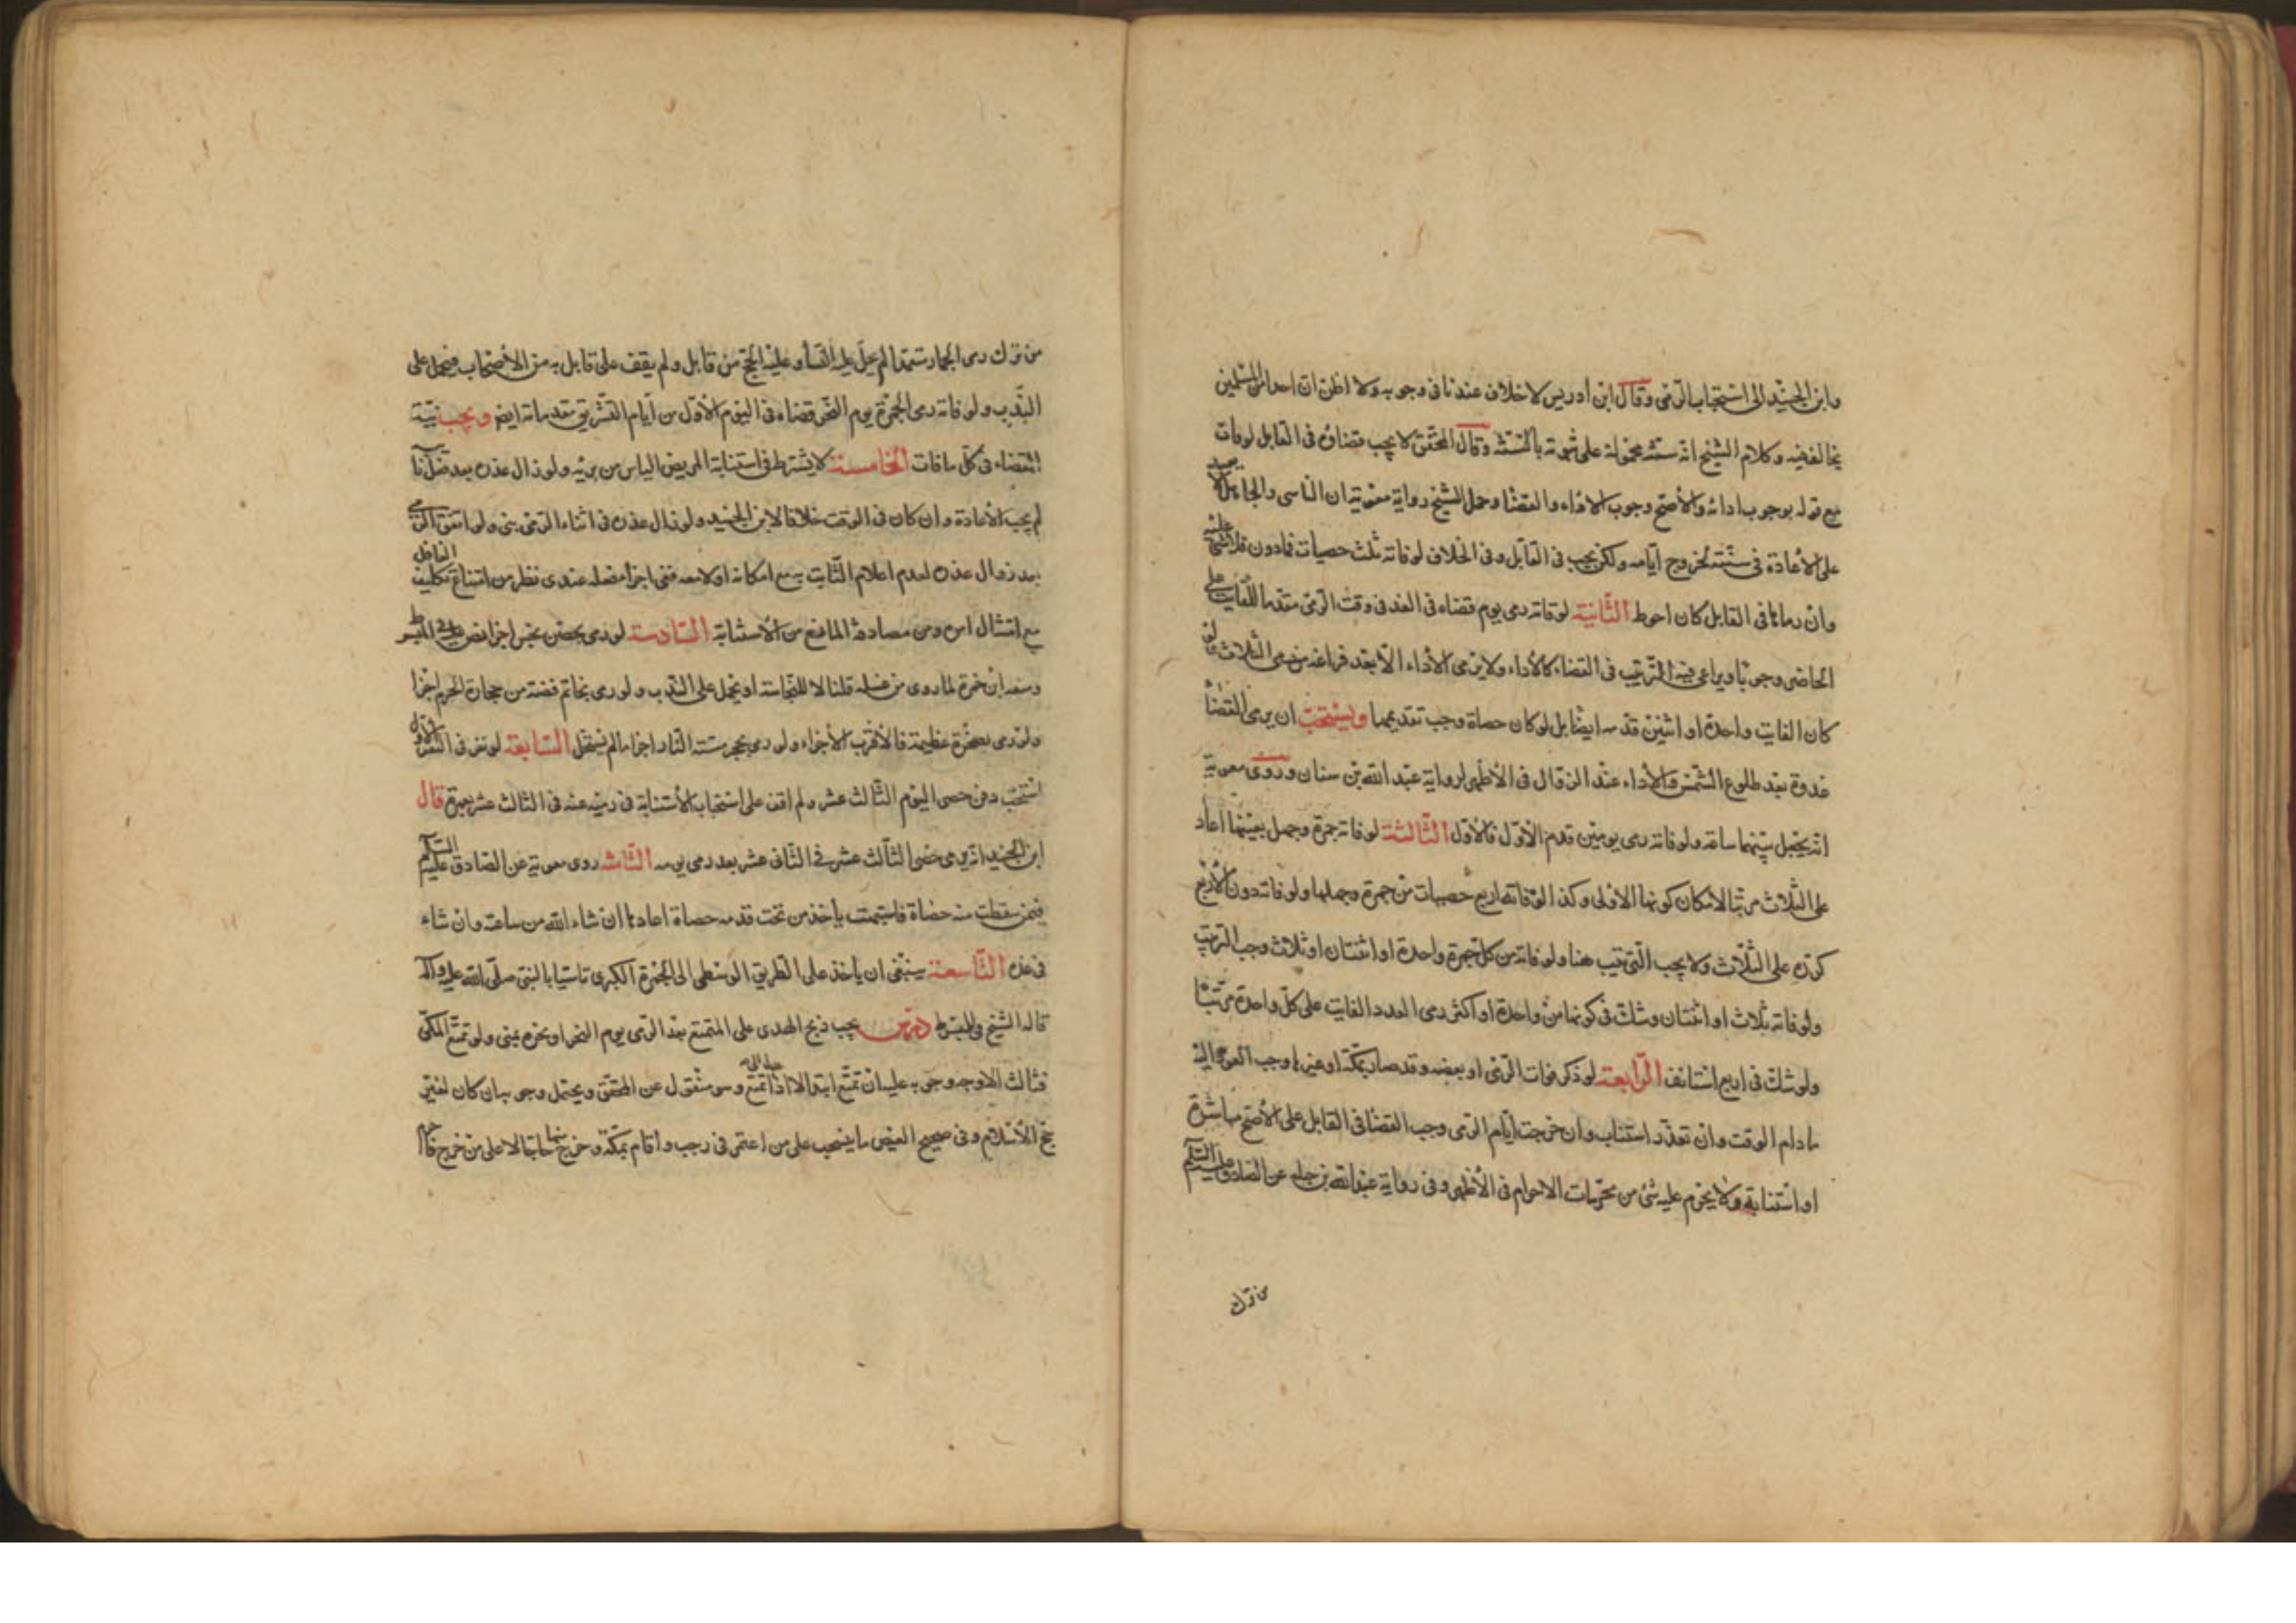 وابن الجنيد الى استحباب الرمى وقال ابن ادريس لا خلاف عندنا فى وجوبه ولا اظن ان احدا من المسلمين
يخالف فيه وكلام الشيخ انه سنة محمولة على ثبوته بالسنة وقال المحقق لا يجب قضاؤه فى القابل لو فات
مع قوله بوجوب ادائه والأصح وجوب الاداء والقضا وحمل الشيخ رواية معوية ان الناسى والجاهل لا يعيد
على الأعادة فى سنته لخروج ايامه ولكن يجب فى القابل وفى الخلاف لو فاته ثلث حصيات فمادون فلا شئ عليه
وان رماها فى القابل كان احوط الثانية لو فاته رمى يوم قضاه فى الغد فى وقت الرمى مقدما للفايت على
الحاضر وجوبا ويراعى فيه الترتيب فى القضاء كالأداء ولا يرمى الأداء الا بعد فراغه من رمى الثلاث فلو
كان الفايت واحدة او اثنين قدمه ايضا بل لو كان حصاة وجب تقديمها ويستحب ان يرمى القضا
غدوة بعد طلوع الشمس والأداء عند الزوال فى الأظهر لرواية عبد الله بن سنان وروى معوية
انه يجعل بينهما ساعة ولو فاته رمى يومين قدم الأول فالأول الثالثة لو فاته جمرة وجهل بعينها اعاد
على الثلاث مرتبا لامكان كونها الاولى وكذا لو فاته اربع حصيات من جمرة وجهلها ولو فاته دون الأربع
كرره على الثلاث ولا يجب الترتيب هنا ولو فاته من كل جمرة واحدة او اثنتان او ثلاث وجب الترتيب
ولو فاته ثلاث او اثنتان وشك فى كونها من واحدة او اكثر رمى العدد الفايت على كل واحدة مرتبا
ولو شك فى اربع استانف الرابعة لو ذكر فوات الرمى او بعضه وقد صار بمكة او غيرها وجب العود اليه
مادام الوقت وان تعذر استناب وان خرجت ايام الرمى وجب القضا فى القابل على الأصح مباشرة
او استنابة ولا يحرم عليه شئ من محرمات الاحرام فى الأظهر وفى رواية عبدالله بن جبلة عن الصادق عليه السلم
من ترك
من ترك رمى الجمار متعمدا لم يحل عليه النسأ وعليه الحج من قابل ولم يقف على قايل به من الأصحاب فيحمل على
الندب ولو فاته رمى الجمرة يوم النحر قضاه فى اليوم الأول من ايام التشريق مقدما له ايض ويجب نية
القضاء فى كل ما فات الخامسة لا يشترط فى استنابة المريض الياس من برئه ولو زال عذره بعد فعل النائب
لم يجب الأعادة وان كان فى الوقت خلافا لابن الجنيد ولو زال عذره فى اثناء الرمى بنى ولو اتفق الرمى
بعد زوال عذره لعدم اعلام النايب به مع امكانه او لا معه ففى اجزا فعله عندى نظر من امتناع تكليف الغافل
مع امتثال امره ومن مصادفة المانع من الأستنابة السادسة لو رمى بحصى نجس اجزا نص عليه فى المبسوط
ومنعه ابن حمزة لما روى من غسله قلنا لا للنجاسة او يحمل على الندب ولو رمى بخاتم فضة من حجارة الحرم اجزا
ولو رمى بصخرة عظيمة فالأقرب الأجزاء ولو رمى بحجر مسته النار اجزا ما لم يستحل السابعة لو نفر فى النفر الأول
استحب دفن حصى اليوم الثالث عشر ولم اقف على استحباب الأستنابة فى رميه عنه فى الثالث عشر بعمرة قال
ابن الجنيد انه يرمى حصى الثالث عشر فى الثانى عشر بعد رمى يومه الثامنة روى معوية عن الصادق عليه السلم
فيمن سقطت منه حصاة فاشتبهت ياخذ من تحت قدمه حصاة اعادها ان شاء الله من ساعته وان شاء
فى غده التاسعة ينبغى ان ياخذ على الطريق الوسطى الى الجمرة الكبرى تاسيا بالنبى صلى الله عليه واله
قاله الشيخ فى المبسوط درس يجب ذبح الهدى على المتمتع بعد الرمى يوم النحر او نحره بمنى ولو تمتع المكى
فثالث الاوجه وجوبه عليه ان تمتع ابتدا لا اذا عاد الى التمتع وهو منقول عن المحقق ويحتمل وجوبه ان كان لغير
حج الأسلام وفى صحيح العيص ما يتحب على من اعتمر فى رجب واقام بمكة وخرج منها حاجا لا على من خرج فاحرم